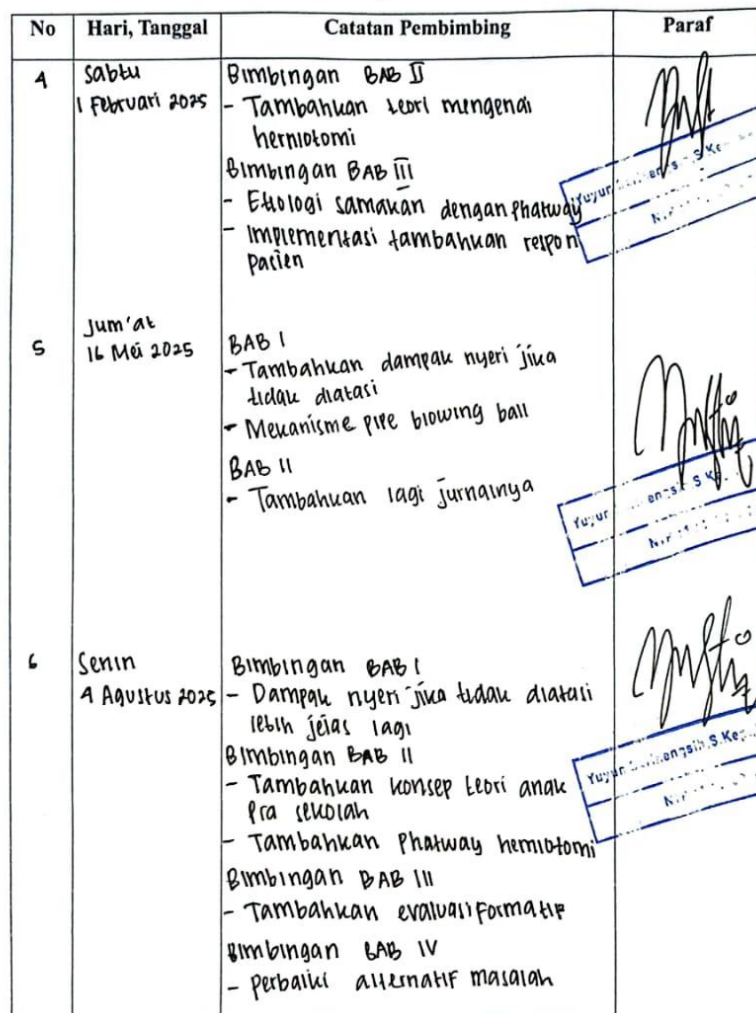 No Hari, Tanggal Catatan Pembimbing Paraf
4 Sabtu
1 Februari 2025
Bimbingan BAB II
- Tambahkan teori mengenai
herniotomi
Bimbingan BAB III
- Etiologi samakan dengan phatway
- Implementasi tambahkan respon
pasien
Yuyur S.Ke
5 Jum'at
16 Mei 2025
BAB I
- Tambahkan dampak nyeri jika
tidak diatasi
- Mekanisme pipe blowing ball
BAB II
- Tambahkan lagi jurnalnya
Yuyur S.Ke
6 Senin
4 Agustus 2025
Bimbingan BAB I
- Dampak nyeri jika tidak diatasi
lebih jelas lagi
Bimbingan BAB II
- Tambahkan konsep teori anak
pra sekolah
- Tambahkan Phatway herniotomi
Bimbingan BAB III
- Tambahkan evaluasi formatif
Bimbingan BAB IV
- Perbaiki alternatif masalah
Yuyur S.Kep